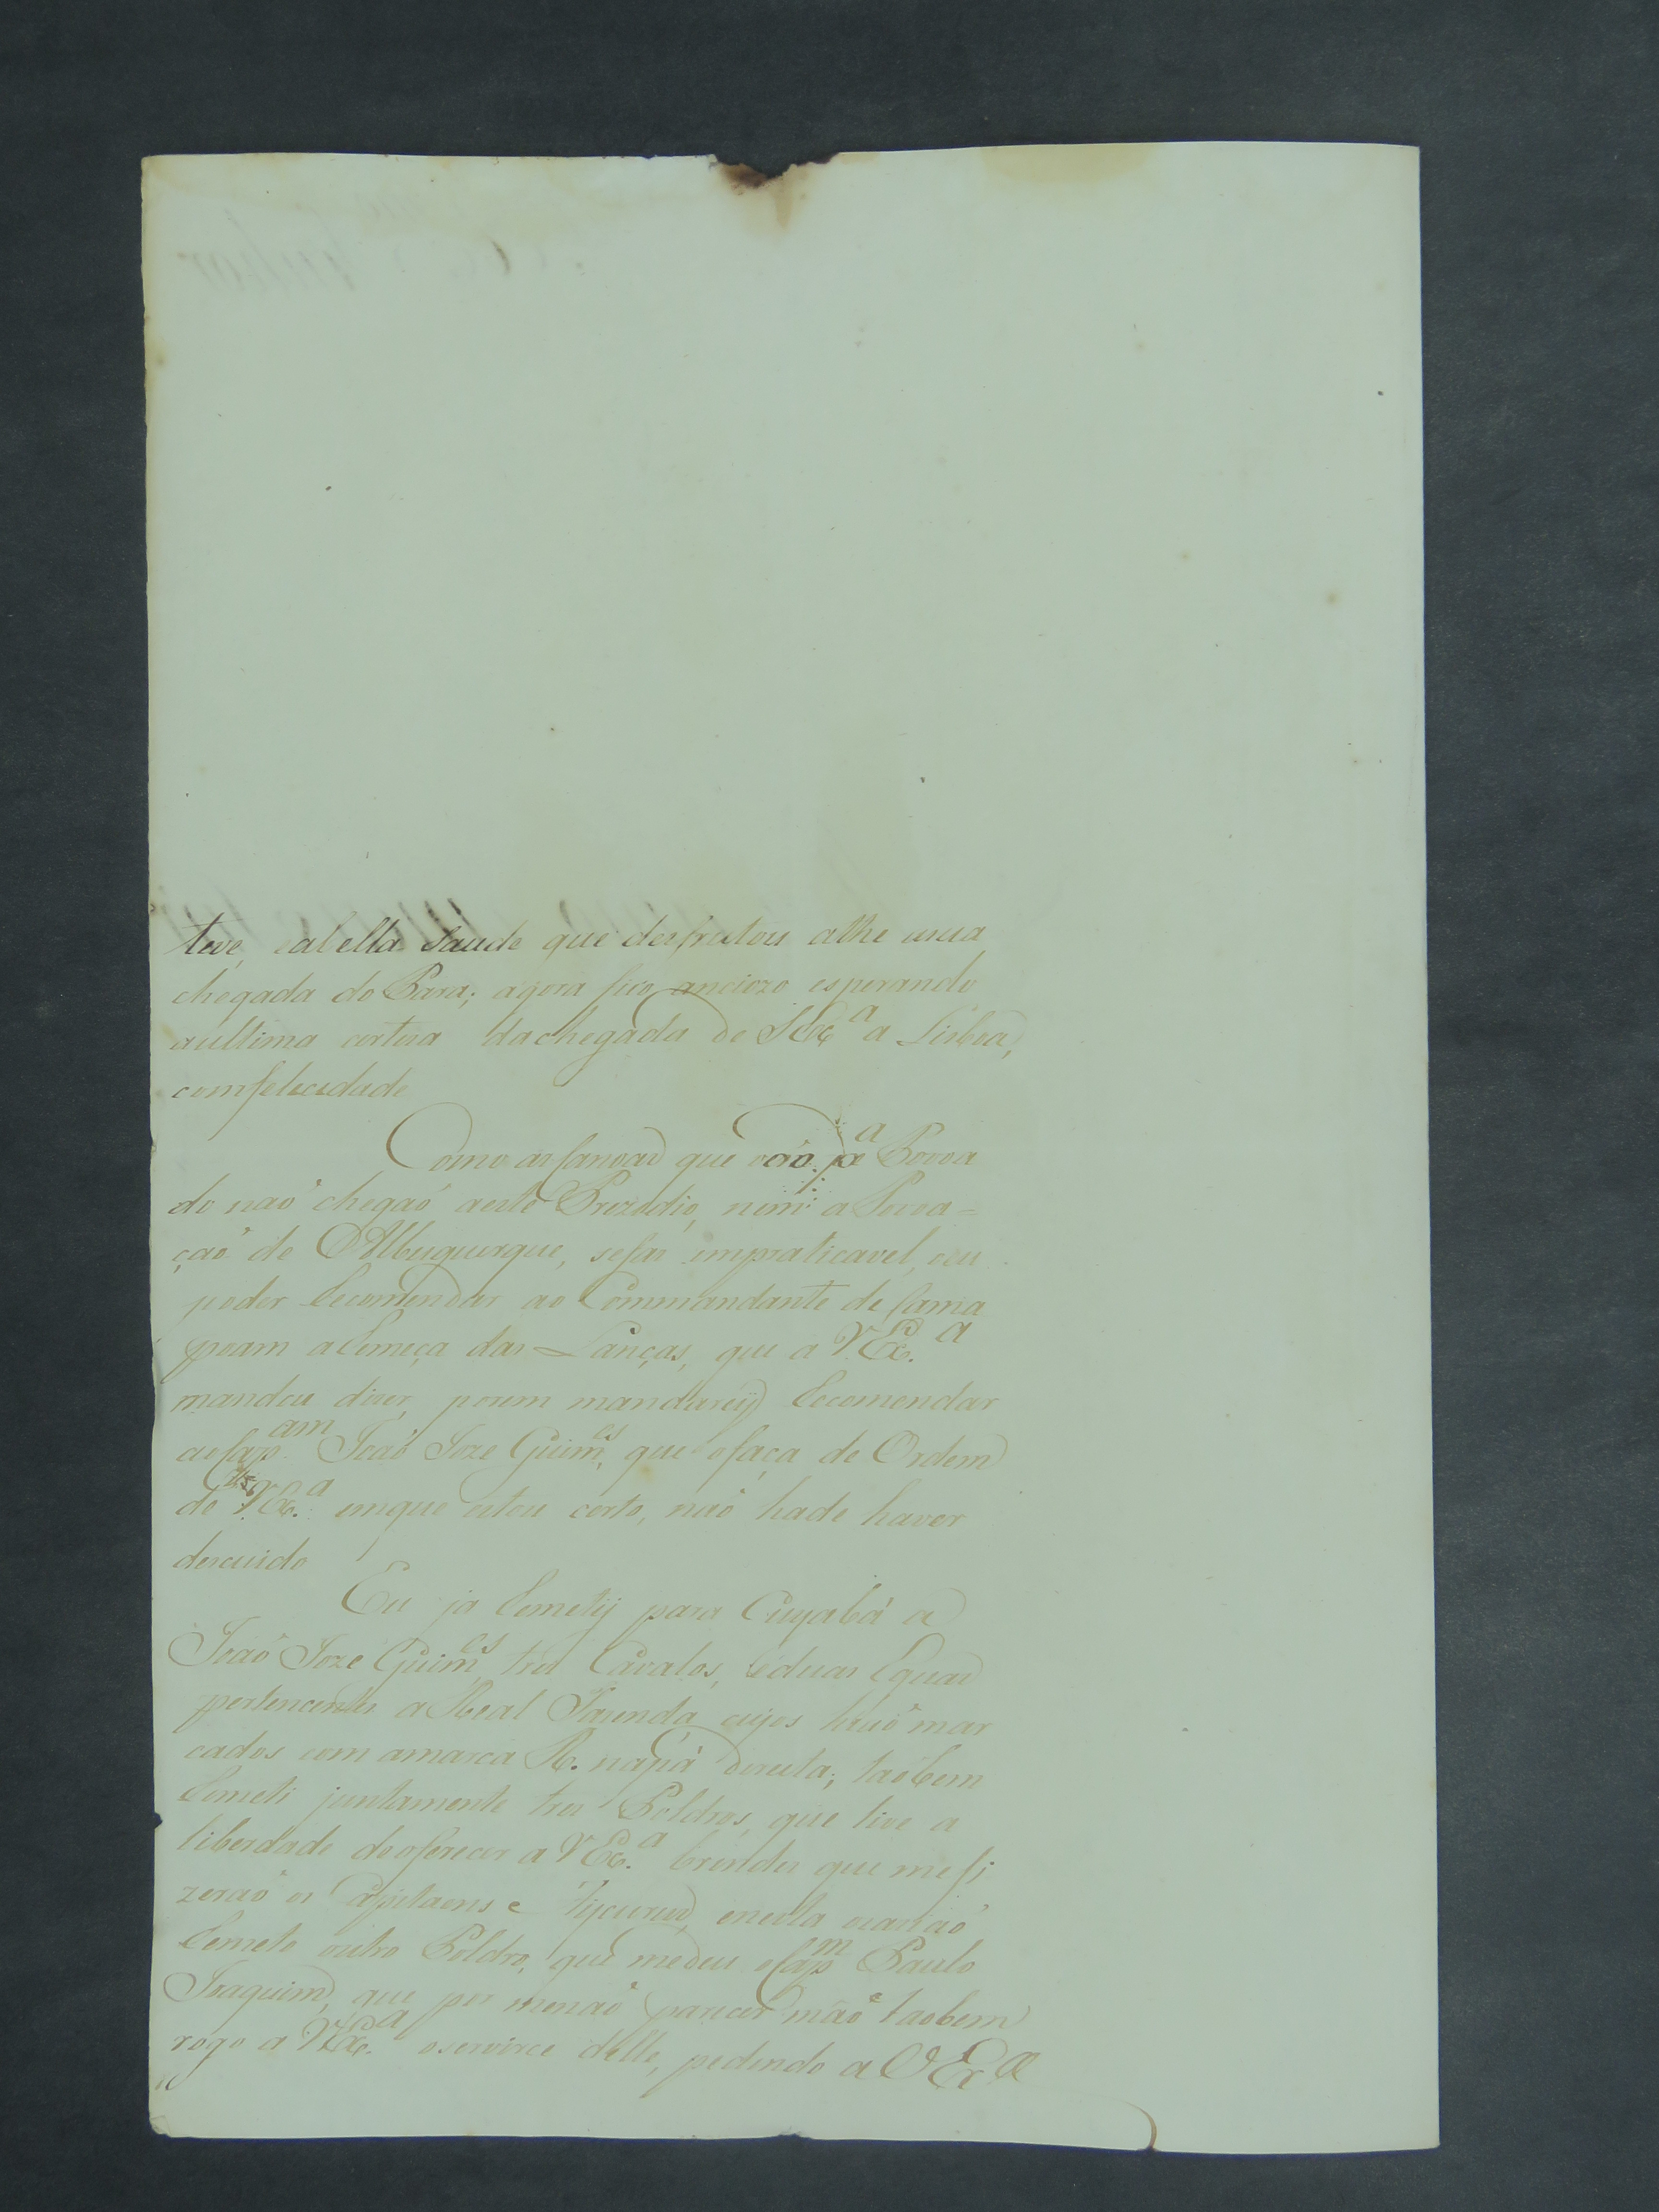 teve, eabella Saude que desfrutou athe asua
chegada do Pará; agora fico anciozo esperando
aultima certeza dachegada de SExª a Lisboa,
comfelicidade
Como as Canoas que vão pª Povoa
do naõ chegaõ aeste Prezidio, nem a Povoa=
çaõ de Albuquerque, sefas impraticavel, oeu
poder Recomendar ao Commandante de Cama
poam aRemeça das Lanças, que a VExª
mandou dizer, porem mandareij Recomendar
aoCapam Joaõ Joze Guimes, que ofaça de Ordem
de VExª emque estou certo, naõ hade haver
descuido
Eu já Remetij para Cuyabá a
Joaõ Joze Guimes, tres Cavalos, eduas Eguas
pertencentes a Real Fazenda cujos hiraõ mar
cados com amarca R. napá direita; taõbem
Remeti juntamente tres Poldros, que tive a
liberdade deoferecer a VExª brindes que mefi
zeraõ os Capitaens e enesta ocaziaõ
Remeto outro Poldro, que medeu oCapm Paulo
Joaquim, que por menaõ parecer máo taobem
rogo a VExª oservirce delle, pedindo a VExª